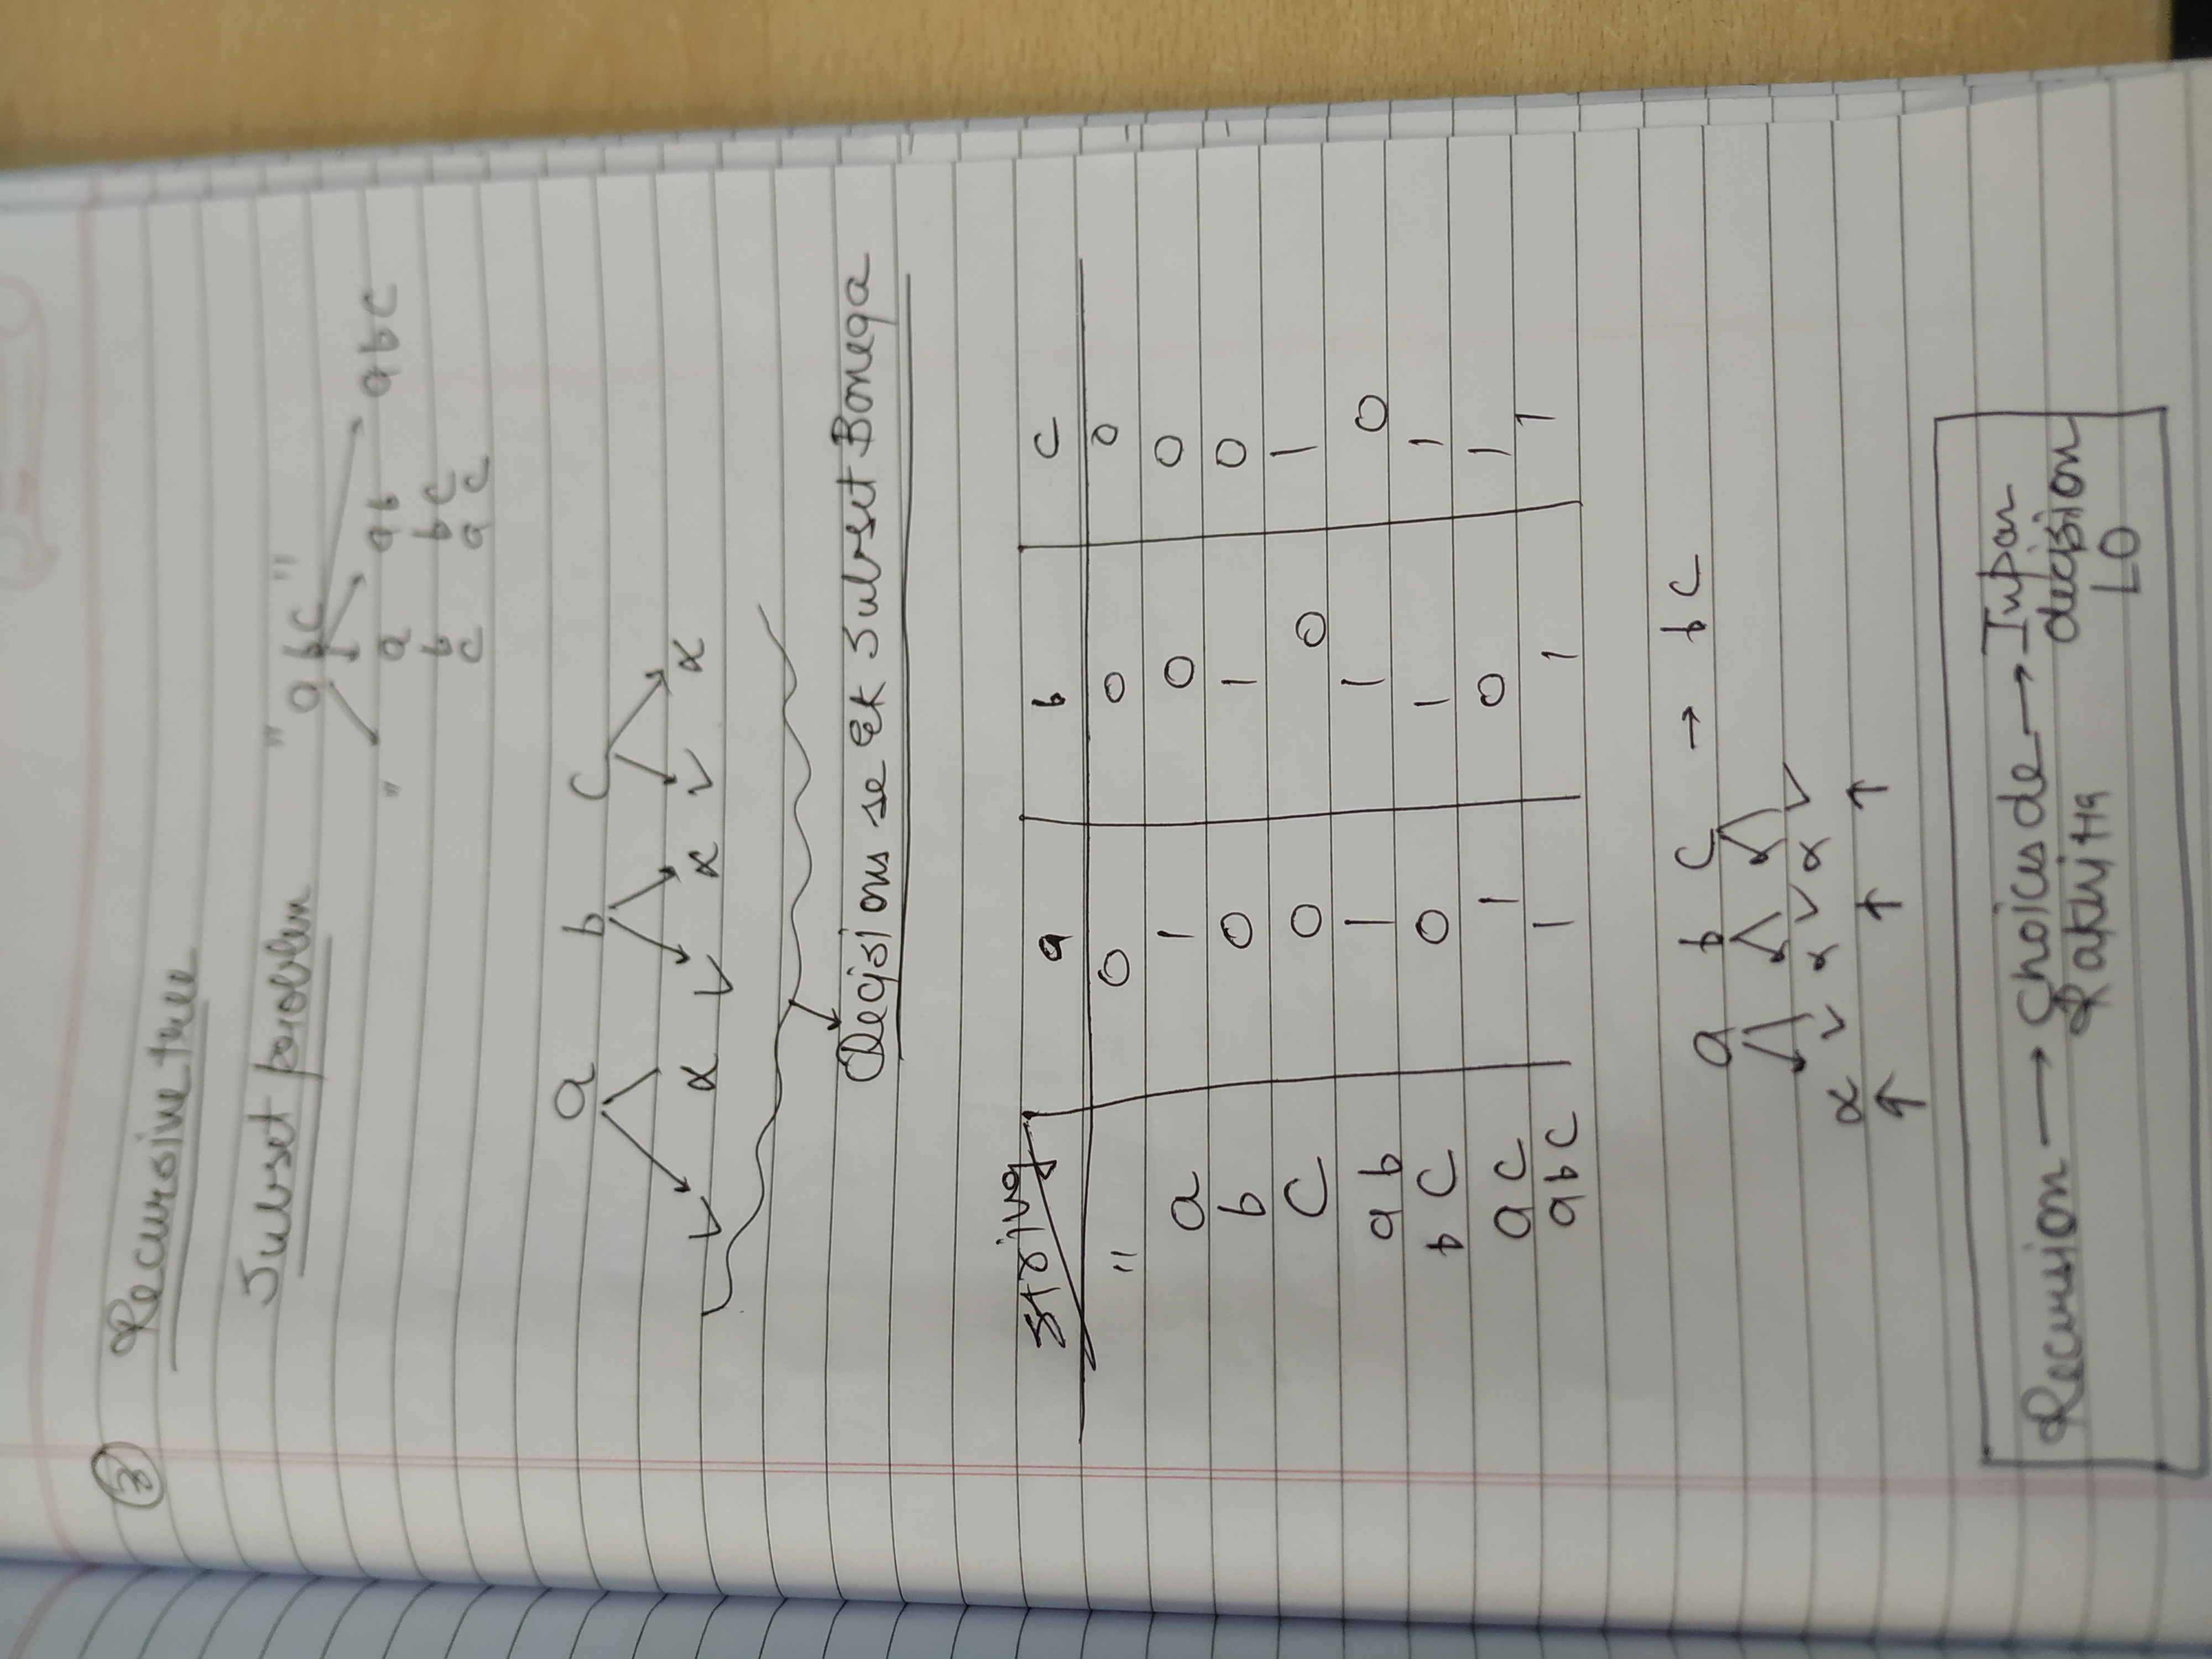 3 Recursive tree
Subset problem "abc"
" a ab abc
b bc
c ac
a b c
✓ x ✓ x ✓ x
Decisions se Ek Subset Banega
String a b c
" 0 0 0
a 1 0 0
b 0 1 0
C 0 0 1
ab 1 1 0
bC 0 1 1
ac 1 0 1
abc 1 1 1
a b c → bc
x ✓ x ✓ x ✓
Recursion → Choices de → Inpar
Rakhi Ha decision
LO